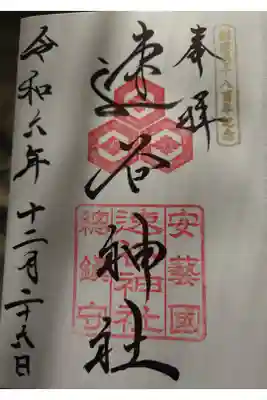 奉拝
速谷神社
安藝國
速谷神社
總鎮守
令和六年 十二月